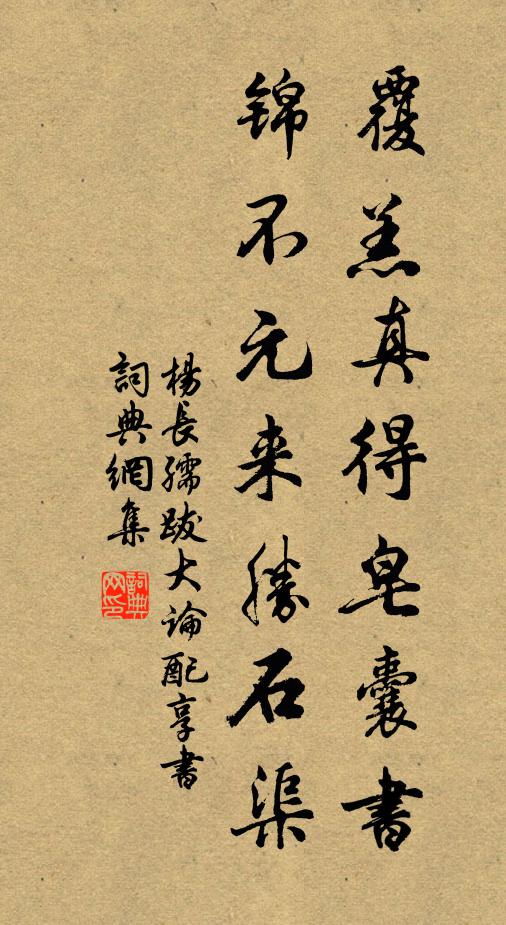 覆羔真得皂囊書
錦不元来勝石渠
楊長孺跋大論配享書
詞典網集
詞典网印